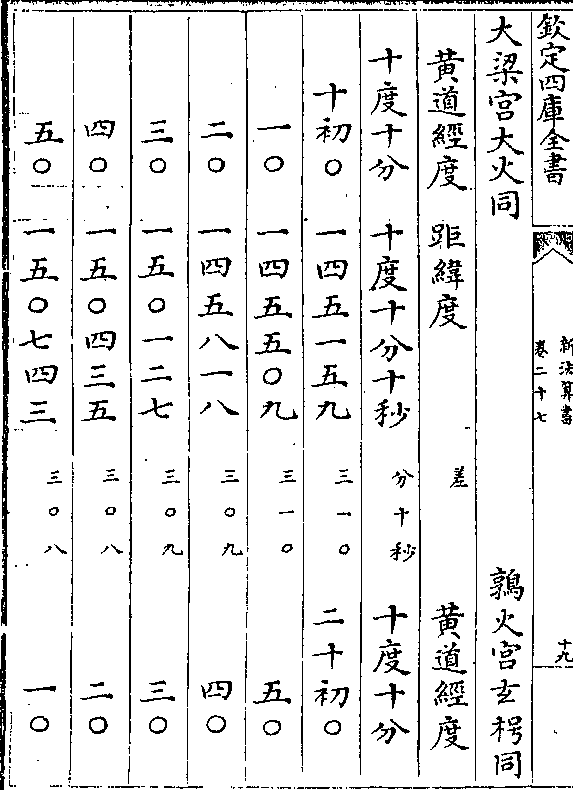 欽定四庫全書
新法算書
卷二十七
十九
大梁宫大火同
鶉火宫玄枵同
黄道經度
距緯度
差
黄道經度
十度十分
十度十分十秒
分十秒
十度十分
十初〇
一四五一五九
三一〇
二十初〇
一〇
一四五五〇九
三一〇
五〇
二〇
一四五八一八
三〇九
四〇
三〇
一五〇一二七
三〇九
三〇
四〇
一五〇四三五
三〇八
二〇
五〇
一五〇七四三
三〇八
一〇